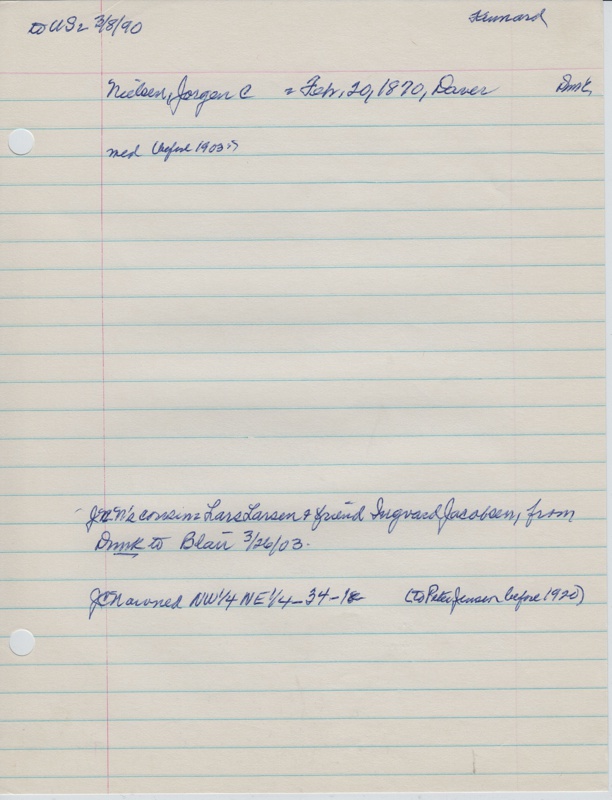 to US = 3/8/90
Kennard
Nielsen, Jorgen C = Feb, 20, 1870, Daver Dmk,
med (before 1903?)
JCN's cousin = Lars Larsen & friend Ingvard Jacobsen, from
Dmk to Blair 3/26/03.
JCN owned NW1/4 NE1/4-34-18 (to Peter Jensen before 1920)